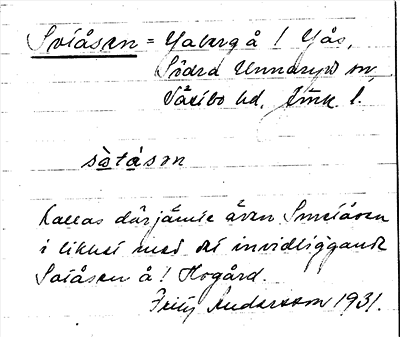 Sotåsen = Yaberg å / Yås,
Södra Unnaryd sn,
Västbo hd, Jönk. l.
sòtåsɘn
Kallas därjämte även Smeåsen
i likhet med det invidliggande
Sotåsen å / Hogård.
Fritz Andersson 1931.